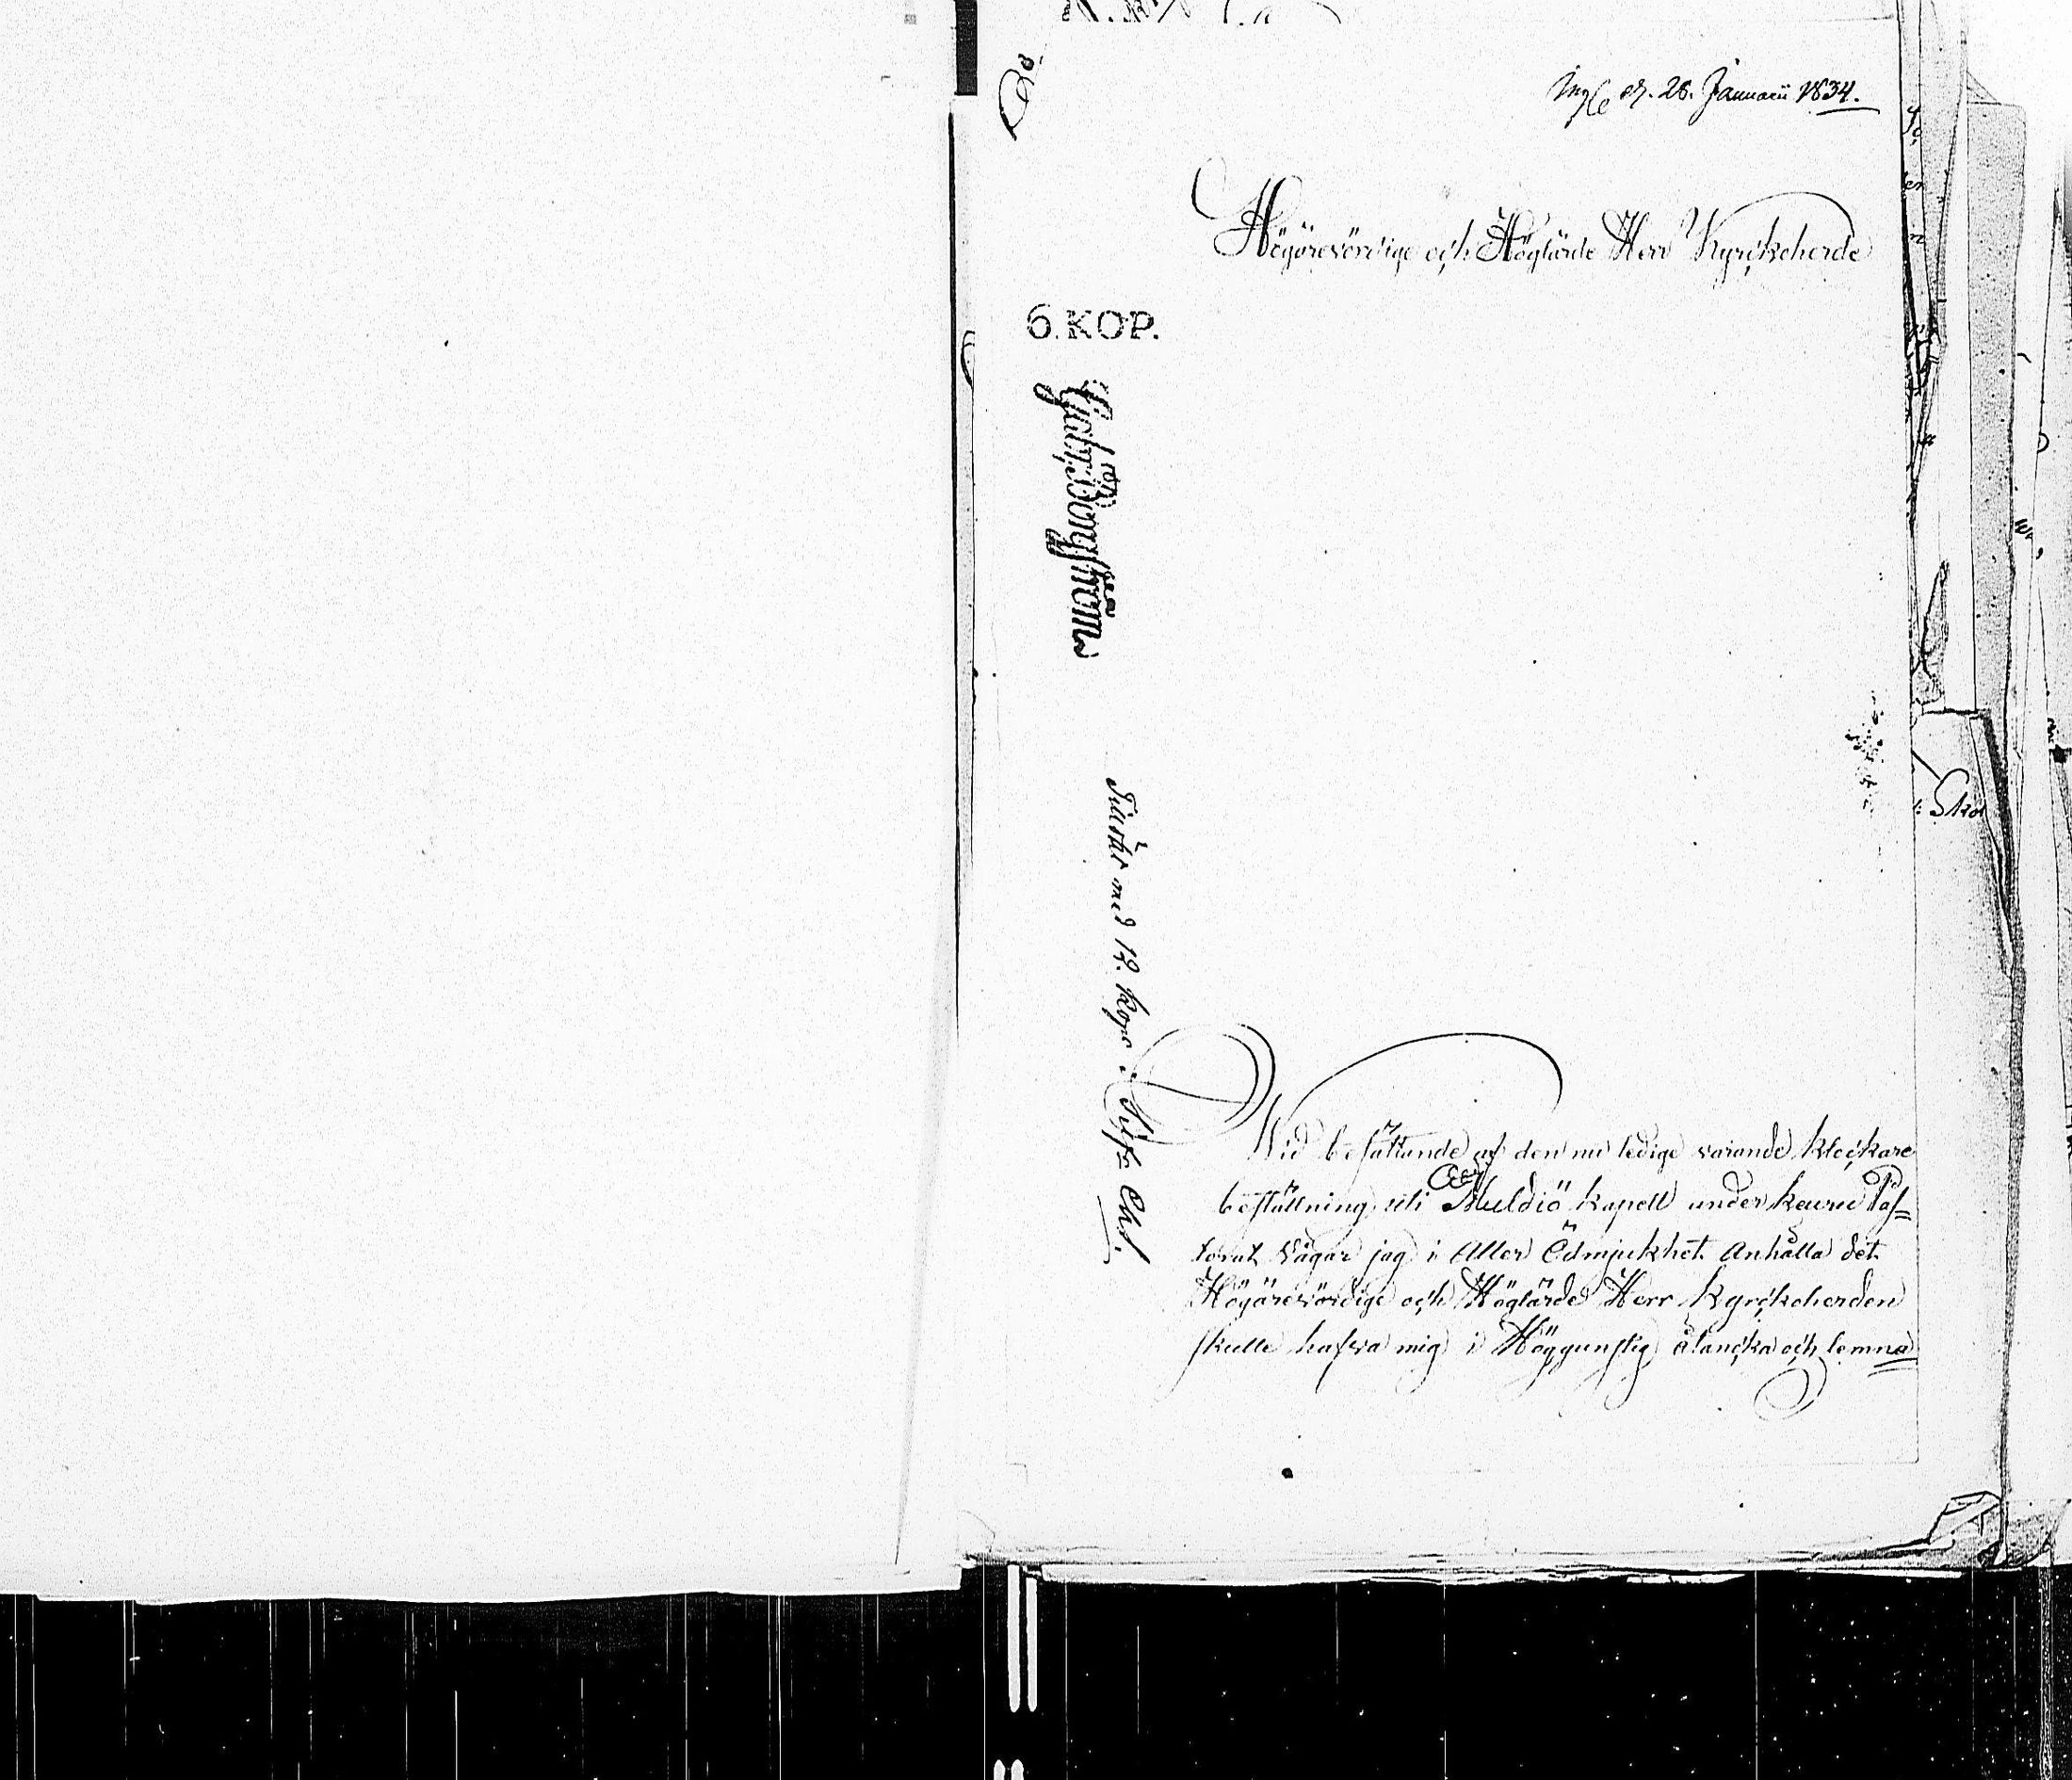 Ingf. d. 28. Januarii 1834.
Högärevördige och Höglärde Herr Kyrckoherde
6. KOP.
med 12. Kop.
Wid besättande af den nu ledige varande klockare
beställning uti Muldiö kapell under keuru Pas=
torat Vågar jag i Aller Ödmjukhet Anhålla det
Högärevördige och Höglärde Herr Kyrckoherden
skulle hafva mig i Höggunstig åtancka och lemna